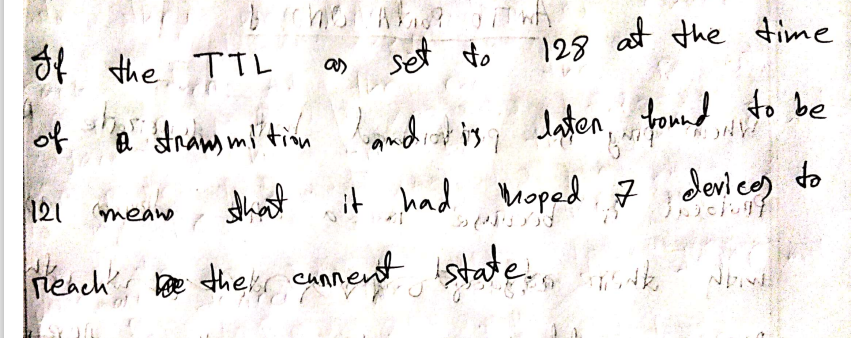 If the TTL as set to 128 at the time
of a transmition and is later found to be
121 means that it had hoped 7 devices to
reach the current state.